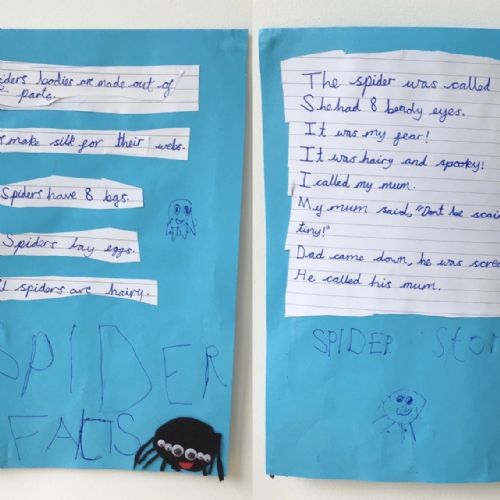 iders bodies are made out of
parts.
make silk for their webs.
Spiders have 8 legs.
Spiders lay eggs.
spiders are hairy.
SPIDER
FACTS
The spider was called
She had 8 beady eyes.
It was my fear!
It was hairy and spooky!
I called my mum.
My mum said, "Dont be
tiny!"
Dad came down, he was
He called his mum.
SPIDER Stor